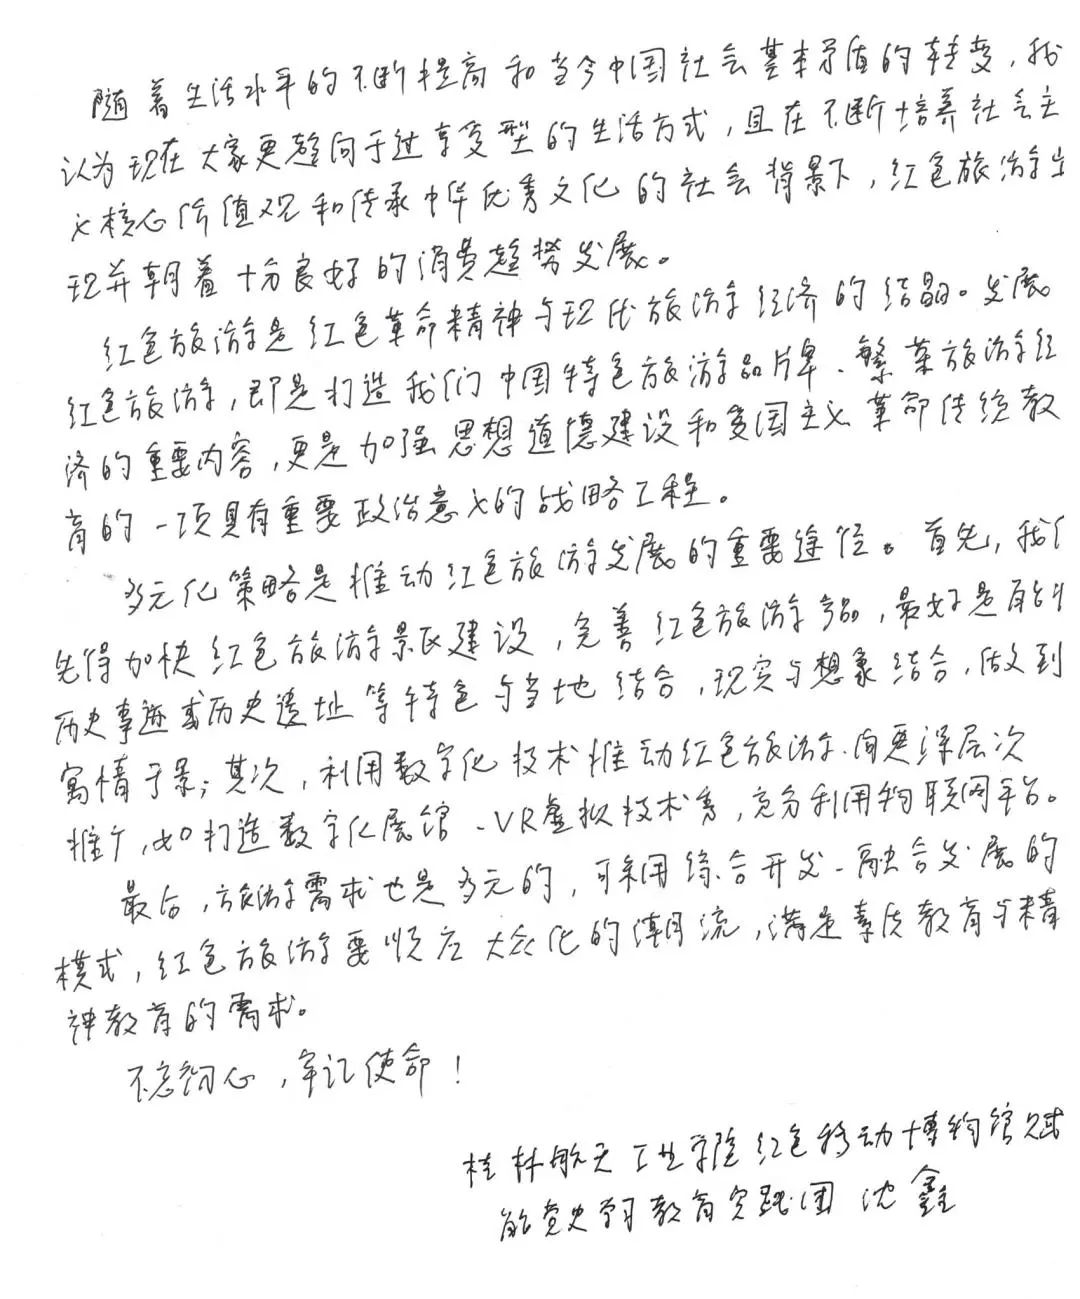 随着生活水平的不断提高和当今中国社会基本矛盾的转变，我
认为现在大家更趋向于过享受型的生活方式，且在不断培养社会主
义核心价值观和传承中华优秀文化的社会背景下，红色旅游出
现并朝着十分良好的消费趋势发展。
红色旅游是红色革命精神与现代旅游经济的结晶。发展
红色旅游，即是打造我们中国特色旅游品牌、繁荣旅游经
济的重要内容，更是加强思想道德建设和爱国主义革命传统教
育的一项具有重要政治意义的战略工程。
多元化策略是推动红色旅游发展的重要途径。首先，我们
先得加快红色旅游景区建设，完善红色旅游产品，最好是有的
历史事迹或历史遗址等特色与当地结合，现实与想象结合，做到
寓情于景；其次，利用数字化技术推动红色旅游向更深层次
推广，如打造数字化展馆、VR虚拟技术等，充分利用物联网平台。
最后，旅游需求也是多元的，可采用综合开发、融合发展的
模式，红色旅游要顺应大众化的潮流，满足素质教育与精
神教育的需求。
不忘初心，牢记使命！
桂林航天工业学院红色移动博物馆赋
能党史学习教育实践团 沈鑫